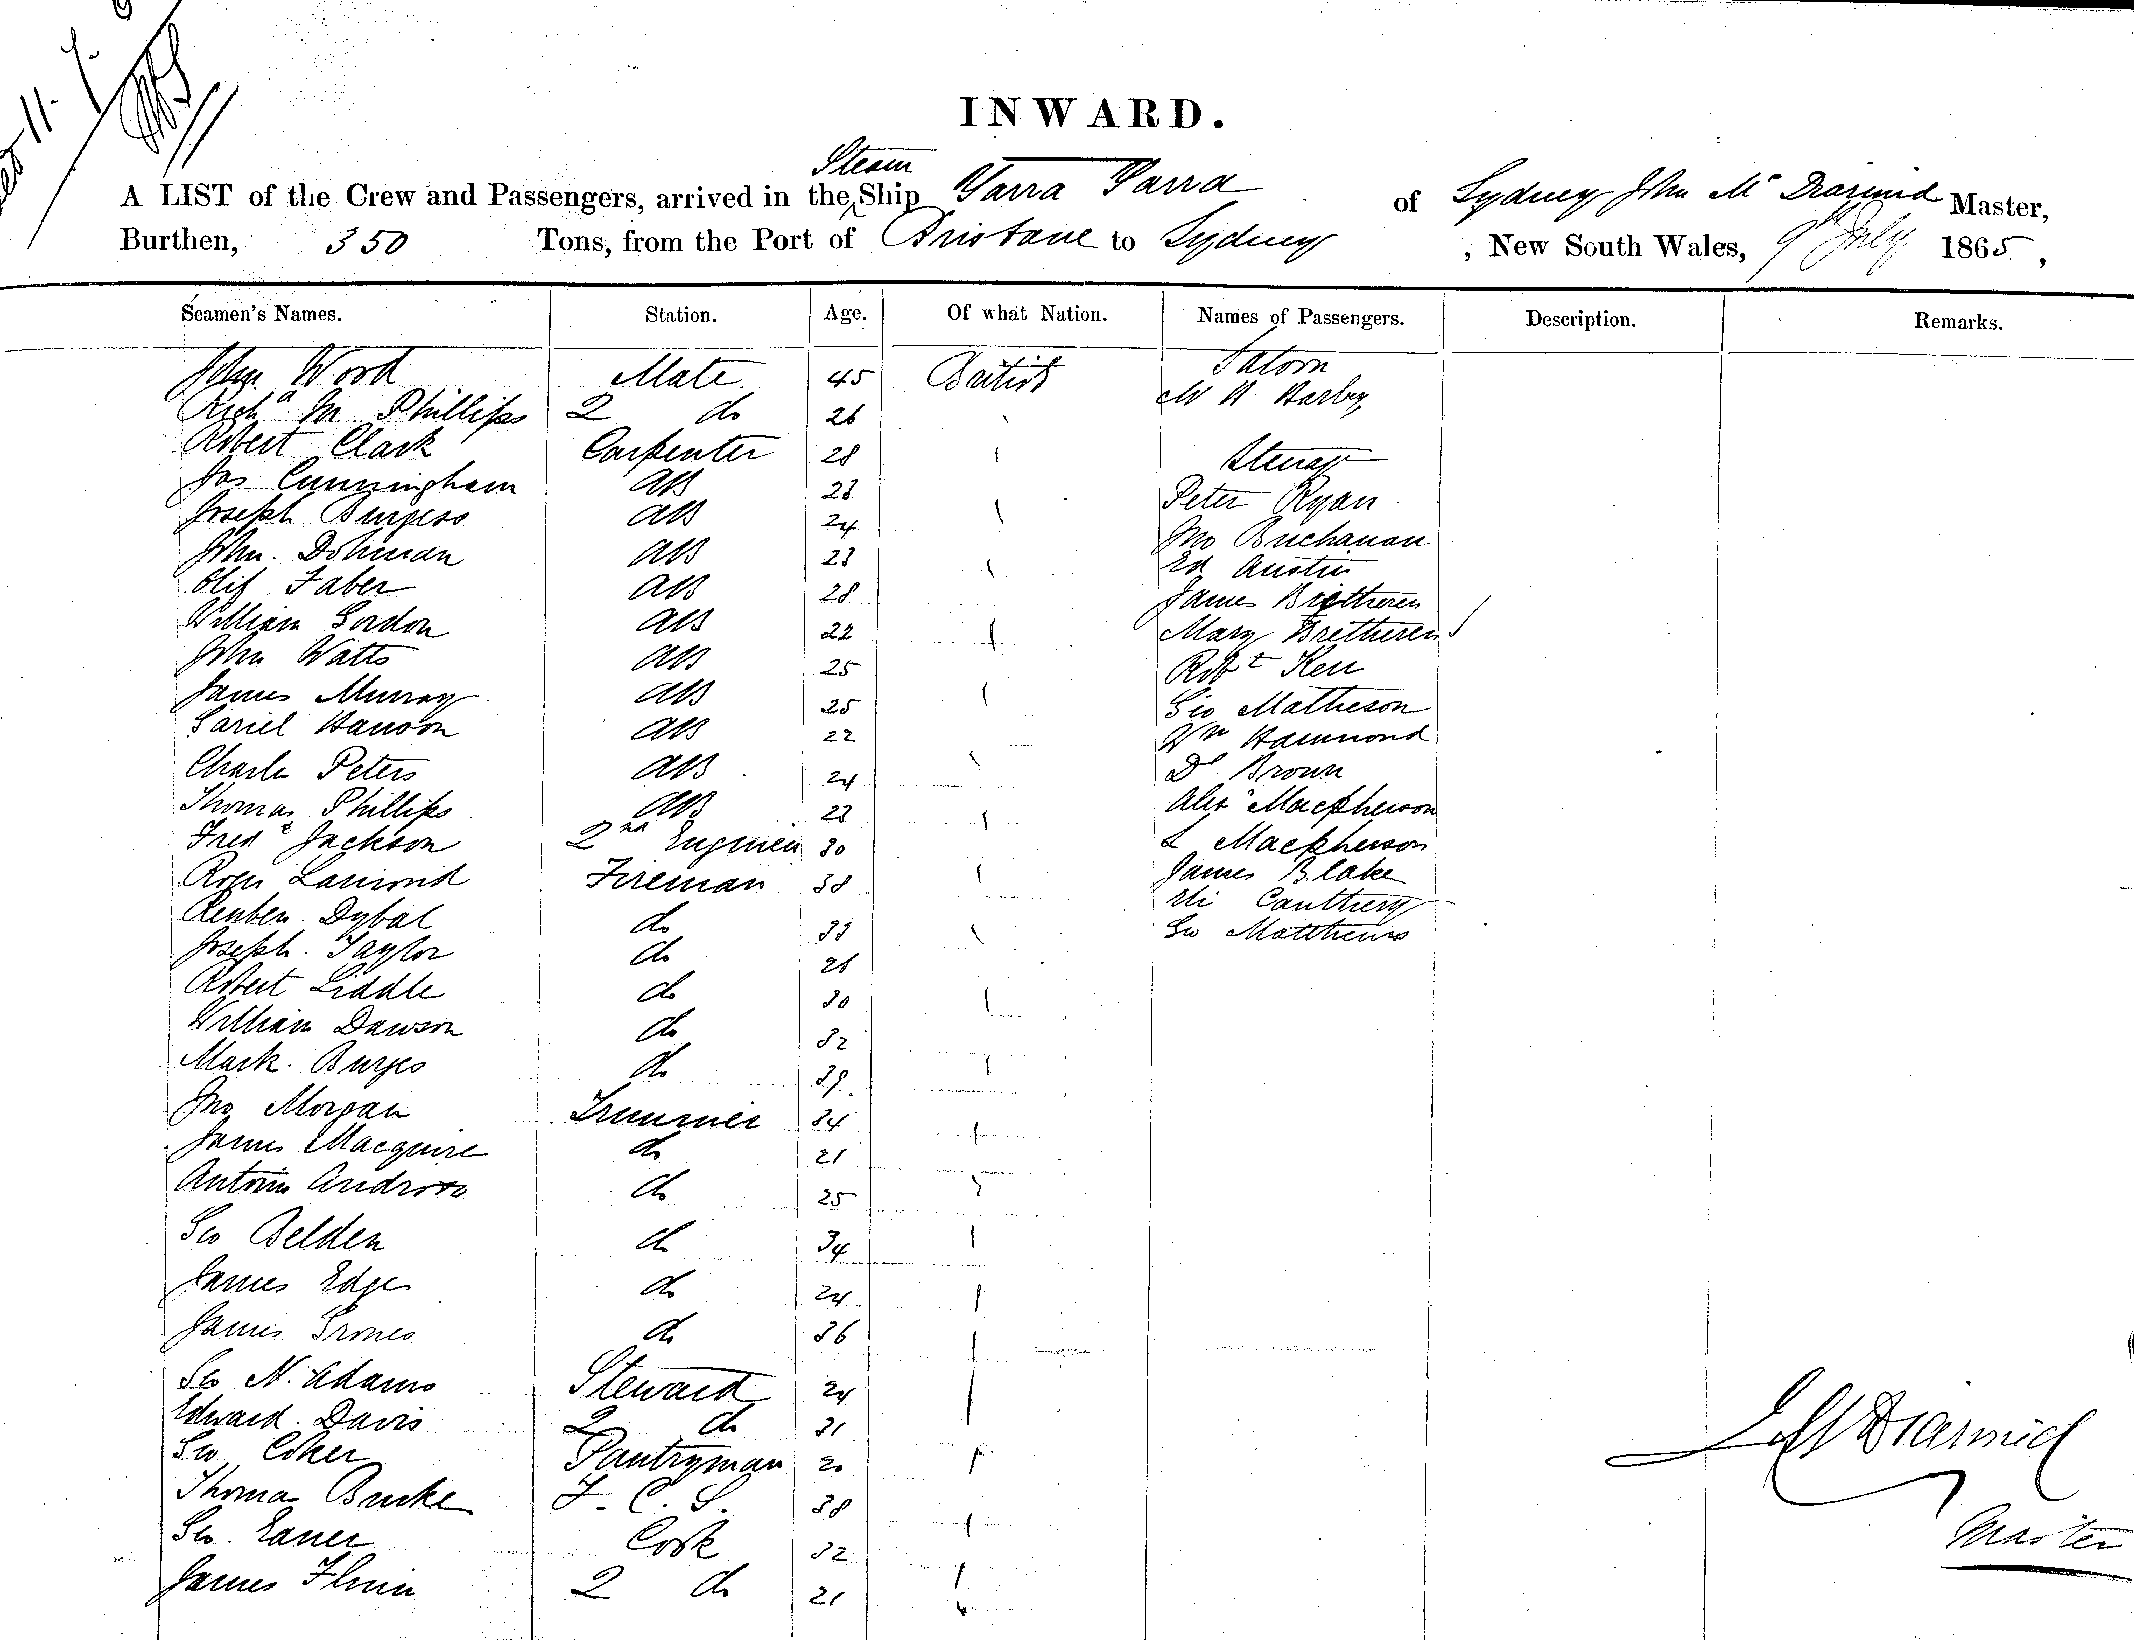 11. 7.
INWARD.
A LIST of the Crew and Passengers, arrived in the Steam Ship Yarra Yarra of Sydney John Mc Diarmid Master,
Burthen, 350 Tons, from the Port of Brisbane to Sydney, New South Wales, 9th July 1865,
Seamen's Names. Station. Age. Of what Nation. Names of Passengers. Description. Remarks.
John Wood Mate 45 British Saloon
Richd Phillips 2 do 26 Barley
Robert Clark Carpenter 28 Steerage
Jas Cunningham AB 23 Peter Ryan
Joseph Burgess AB 24 Jno Buchanan
John Dohman AB 23 Ed Austin
Olif Faber AB 28 James Bretheren
William Gordon AB 22 Mary Bretheren
John Watts AB 25 Robt Kerr
James Murray AB 25 Geo Matheson
Hanson AB 22 Wm Hammond
Charles Peters AB 24 Dl Brown
Thomas Phillips AB 23 Alexr Macpherson
Fredk Jackson 2nd Engineer 30 L Macpherson
Roger Lamond Fireman 38 James Blake
Reuben Dybal do 33 Eli Cauthery
Joseph Taylor do 26 Geo Matthews
Robert Liddle do 30
William Dawson do 32
Mark Burges do 39
Jno Morgan Trimmer 34
James Macquire do 21
Antonio do 25
Geo Belden do 34
James Edge do 24
James do 36
Geo N. Adams Steward 24
Edward Davis 2 do 31
Geo Coker Pantryman 20
Thomas Burke F. C. S. 38
Geo Cook 32
James Flinn 2 do 21
J McDiarmid
Master